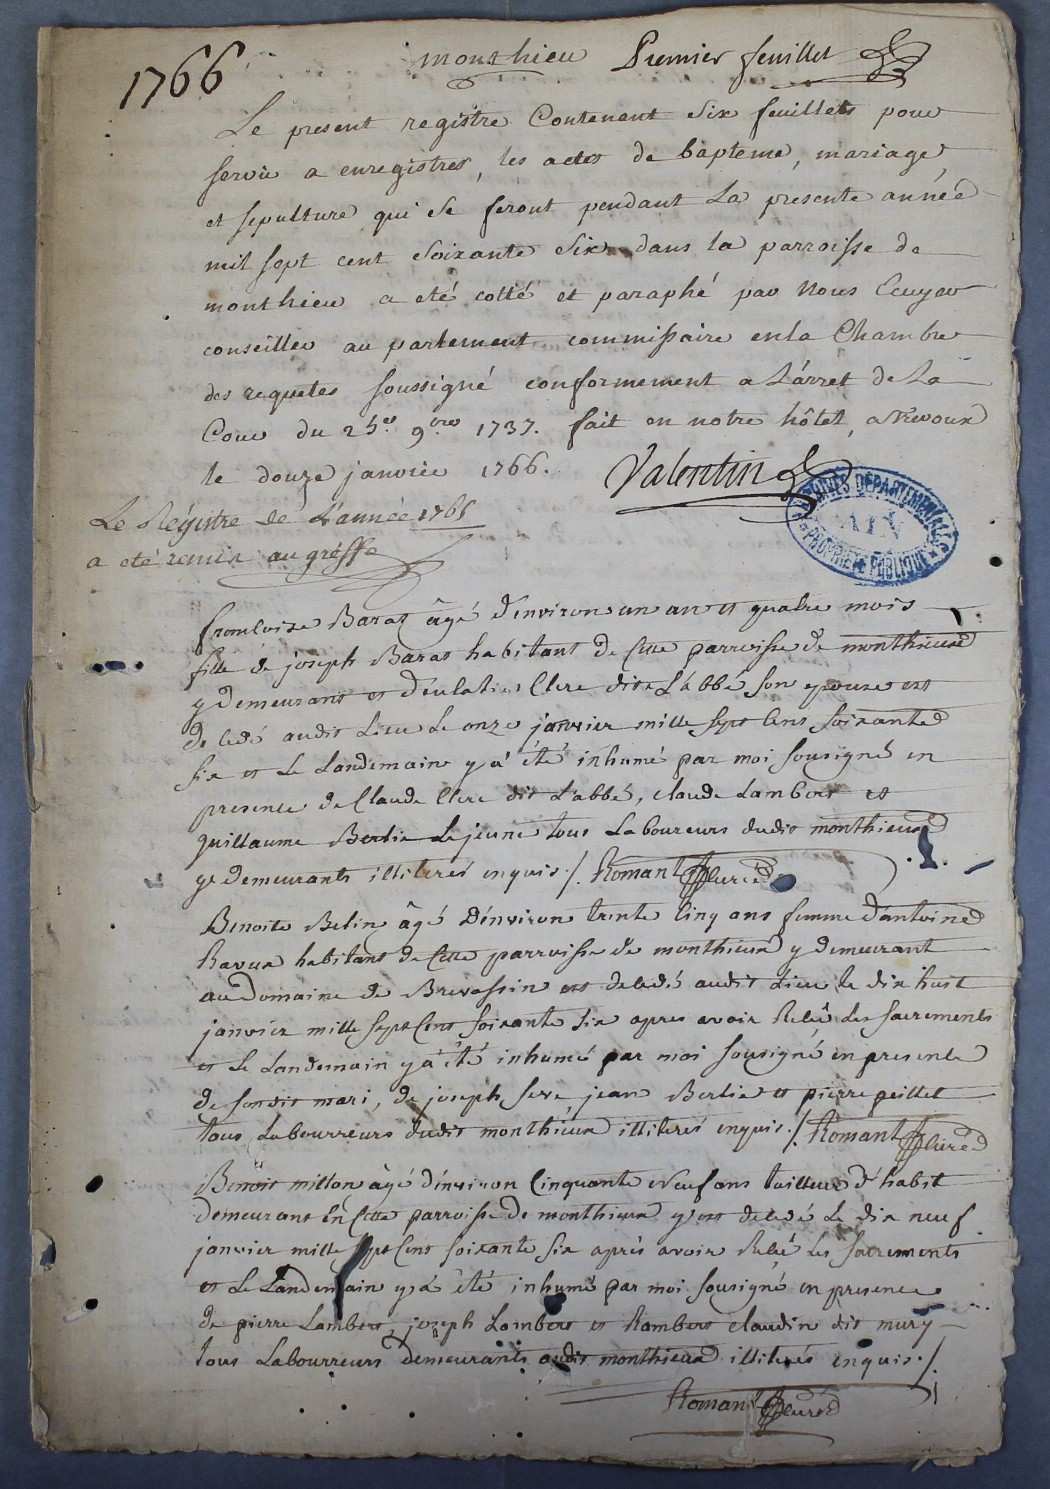 1766
monthieu Premier feuillet
Le present registre Contenant Six feuillets pour
servir a enregistrer, les actes de bapteme, mariage,
et sepulture qui Se feront pendant La presente année
mil sept cent Soixante Six dans la parroisse de
monthieu a eté cotté et paraphé par Nous Ecuyer
conseiller au parlement commissaire en la Chambre
des requetes soussigné conformement a L'arret de La
Cour du 9bre 1737. fait en notre hôtel, a Trevoux
le douze janvier 1766. Valentin
ARCHIVES DÉPARTEMENTALES
AIN
PROPRIÉTÉ PUBLIQUE
Le Régistre de L'année 1765
a eté remis au gréffe
francoise Barat âgé d'environ un an et quatre mois
fille de joseph Barat habitant de Cette parroisse de monthieux
y demeurant et d'eulalie Clerc dite L'abbé son epouse est
decedé audit Lieu Le onze janvier mille sept Cent soixante
six et Le Landemain y a été inhumé par moi sousigné en
presence de Claude Clerc dit L'abbé, claude Lambert et
guillaume Berlie Le jeune tous Laboureurs dudit monthieux
y demeurants illiterés enquis ./. Romant curé
Benoite Belin âgé d'environ trente Cinq ans femme d'antoine
Ravux habitant de Cette parroisse de monthieux y demeurant
au Domaine de Brevassin est decedé audit Lieu le dix huit
janvier mille sept Cent soixante six apres avoir Recû Les sacrements
et Le Landemain y a été inhumé par moi sousigné en presence
de sondit mari, de joseph seve jean Berlie et pierre peillet
tous Labourreurs dudit monthieux illiterés enquis ./. Romant curé
Benoit millon âgé d'environ Cinquante Neuf ans tailleur d'habit
demeurant En Cette parroisse de monthieux y est decedé Le dix neuf
janvier mille sept Cent soixante six après avoir Recû Les sacrements
et Le Landemain y a été inhumé par moi sousigné en presence
de pierre Lambert, joseph Lambert et Rambert claudin dit mury
tous Labourreurs demeurants audit monthieux illiterés enquis ./.
Romant curé